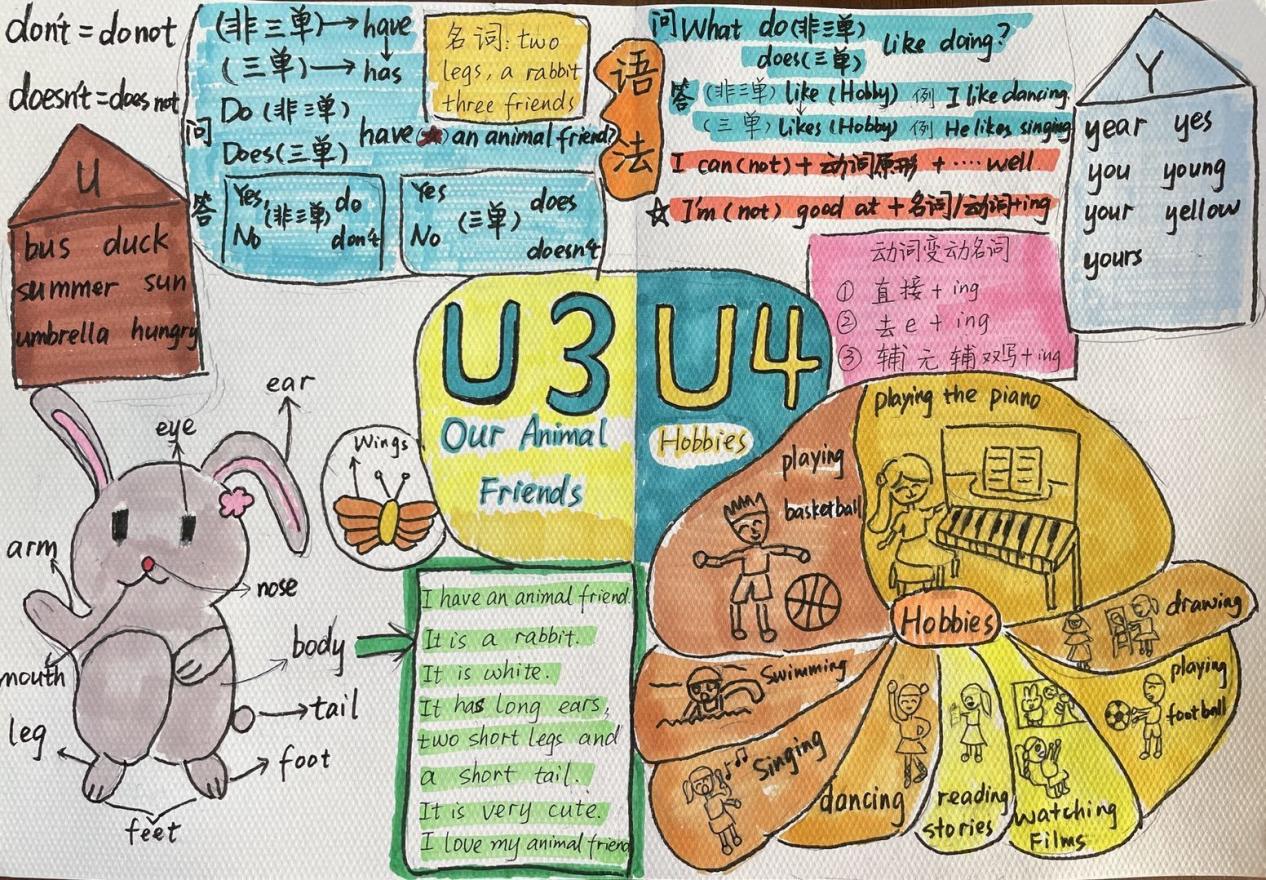 don't = do not
doesn't = does not
U
bus duck
summer sun
umbrella hungry
(非三单)→ have
(三单)→ has
问
Do (非三单)
Does(三单)
have an animal friend?
答
Yes, No (非三单) do don't
Yes No (三单) does doesn't
名词: two
legs, a rabbit
three friends
语法
问 What do(非三单) like doing?
does(三单)
答 (非三单) like (Hobby) 例 I like dancing.
(三单) likes (Hobby) 例 He likes singing
I can (not) + 动词原形 + .... well
☆ I'm (not) good at + 名词/动词+ing
动词变动名词
① 直接 + ing
② 去 e + ing
③ 辅元辅双写+ing
Y
year yes
you young
your yellow
yours
U3
Our Animal
Friends
U4
Hobbies
ear
eye
arm
nose
mouth
body
leg
tail
foot
feet
Wings
I have an animal friend.
It is a rabbit.
It is white.
It has long ears,
two short legs and
a short tail.
It is very cute.
I love my animal friend
Hobbies
playing the piano
playing
basketball
swimming
singing
dancing
reading
stories
watching
films
playing
football
drawing